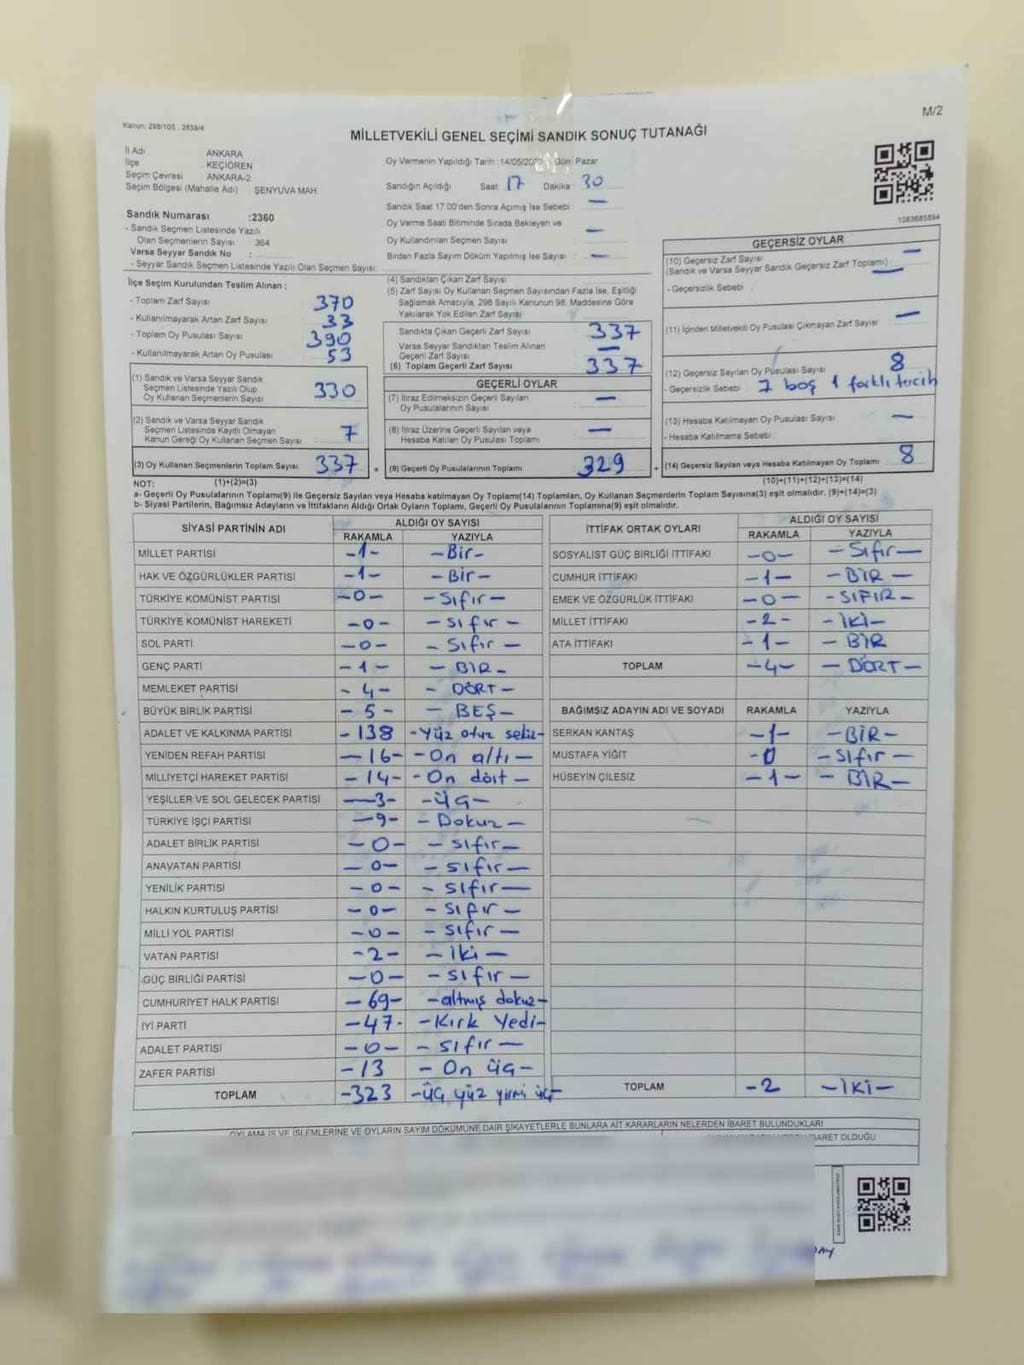 Kanun: 298/105 , 2839/4
M/2
MİLLETVEKİLİ GENEL SEÇİMİ SANDIK SONUÇ TUTANAĞI
İl Adı ANKARA
İlçe KEÇİÖREN
Seçim Çevresi ANKARA-2
Seçim Bölgesi (Mahalle Adı) ŞENYUVA MAH.
Oy Vermenin Yapıldığı Tarih :14/05/ Gün: Pazar
Sandığın Açıldığı Saat 17 Dakika 30
Sandık Saat 17:00'den Sonra Açılmış İse Sebebi : —
Oy Verme Saati Bitiminde Sırada Bekleyen ve
Oy Kullandırılan Seçmen Sayısı —
Birden Fazla Sayım Döküm Yapılmış İse Sayısı —
1083685894
Sandık Numarası :2360
- Sandık Seçmen Listesinde Yazılı
Olan Seçmenlerin Sayısı : 364
Varsa Seyyar Sandık No :
- Seyyar Sandık Seçmen Listesinde Yazılı Olan Seçmen Sayısı :
İlçe Seçim Kurulundan Teslim Alınan ;
- Toplam Zarf Sayısı 370
- Kullanılmayarak Artan Zarf Sayısı 33
- Toplam Oy Pusulası Sayısı 390
- Kullanılmayarak Artan Oy Pusulası 53
(1) Sandık ve Varsa Seyyar Sandık
Seçmen Listesinde Yazılı Olup
Oy Kullanan Seçmenlerin Sayısı 330
(2) Sandık ve Varsa Seyyar Sandık
Seçmen Listesinde Kayıtlı Olmayan
Kanun Gereği Oy Kullanan Seçmen Sayısı 7
(3) Oy Kullanan Seçmenlerin Toplam Sayısı 337 =
(4) Sandıktan Çıkan Zarf Sayısı
(5) Zarf Sayısı Oy Kullanan Seçmen Sayısından Fazla İse, Eşitliği
Sağlamak Amacıyla, 298 Sayılı Kanunun 98. Maddesine Göre
Yakılarak Yok Edilen Zarf Sayısı
Sandıkta Çıkan Geçerli Zarf Sayısı 337
Varsa Seyyar Sandıktan Teslim Alınan
Geçerli Zarf Sayısı —
(6) Toplam Geçerli Zarf Sayısı 337
GEÇERLİ OYLAR
(7) İtiraz Edilmeksizin Geçerli Sayılan
Oy Pusulalarının Sayısı —
(8) İtiraz Üzerine Geçerli Sayılan veya
Hesaba Katılan Oy Pusulası Toplamı —
(9) Geçerli Oy Pusulalarının Toplamı 329 +
GEÇERSİZ OYLAR
(10) Geçersiz Zarf Sayısı —
(Sandık ve Varsa Seyyar Sandık Geçersiz Zarf Toplamı) —
- Geçersizlik Sebebi :
(11) İçinden Milletvekili Oy Pusulası Çıkmayan Zarf Sayısı —
(12) Geçersiz Sayılan Oy Pusulası Sayısı 8
- Geçersizlik Sebebi 7 boş 1 farklı tercih
(13) Hesaba Katılmayan Oy Pusulası Sayısı —
- Hesaba Katılmama Sebebi :
(14) Geçersiz Sayılan veya Hesaba Katılmayan Oy Toplamı 8
NOT: (1)+(2)=(3) (10)+(11)+(12)+(13)=(14)
a- Geçerli Oy Pusulalarının Toplamı(9) ile Geçersiz Sayılan veya Hesaba katılmayan Oy Toplamı(14) Toplamları, Oy Kullanan Seçmenlerin Toplam Sayısına(3) eşit olmalıdır. (9)+(14)=(3)
b- Siyasi Partilerin, Bağımsız Adayların ve İttifakların Aldığı Ortak Oyların Toplamı, Geçerli Oy Pusulalarının Toplamına(9) eşit olmalıdır.
SİYASİ PARTİNİN ADI ALDIĞI OY SAYISI
RAKAMLA YAZIYLA
MİLLET PARTİSİ -1- -Bir-
HAK VE ÖZGÜRLÜKLER PARTİSİ -1- -Bir-
TÜRKİYE KOMÜNİST PARTİSİ -0- -Sıfır-
TÜRKİYE KOMÜNİST HAREKETİ -0- -sıfır-
SOL PARTİ -0- -Sıfır-
GENÇ PARTİ -1- -BİR-
MEMLEKET PARTİSİ -4- -DÖRT-
BÜYÜK BİRLİK PARTİSİ -5- -BEŞ-
ADALET VE KALKINMA PARTİSİ -138 -Yüz otuz sekiz-
YENİDEN REFAH PARTİSİ -16- -On altı-
MİLLİYETÇİ HAREKET PARTİSİ -14- -On dört-
YEŞİLLER VE SOL GELECEK PARTİSİ -3- -Üç-
TÜRKİYE İŞÇİ PARTİSİ -9- -Dokuz-
ADALET BİRLİK PARTİSİ -0- -sıfır-
ANAVATAN PARTİSİ -0- -sıfır-
YENİLİK PARTİSİ -0- -sıfır-
HALKIN KURTULUŞ PARTİSİ -0- -sıfır-
MİLLİ YOL PARTİSİ -0- -sıfır-
VATAN PARTİSİ -2- -iki-
GÜÇ BİRLİĞİ PARTİSİ -0- -sıfır-
CUMHURİYET HALK PARTİSİ -69- -altmış dokuz-
İYİ PARTİ -47- -Kırk Yedi-
ADALET PARTİSİ -0- -sıfır-
ZAFER PARTİSİ -13 -On üç-
TOPLAM -323 -üç yüz yirmi üç-
İTTİFAK ORTAK OYLARI ALDIĞI OY SAYISI
RAKAMLA YAZIYLA
SOSYALİST GÜÇ BİRLİĞİ İTTİFAKI -0- -Sıfır-
CUMHUR İTTİFAKI -1- -BİR-
EMEK VE ÖZGÜRLÜK İTTİFAKI -0- -SIFIR-
MİLLET İTTİFAKI -2- -İKİ-
ATA İTTİFAKI -1- -BİR
TOPLAM -4- -DÖRT-
BAĞIMSIZ ADAYIN ADI VE SOYADI RAKAMLA YAZIYLA
SERKAN KANTAŞ -1- -BİR-
MUSTAFA YİĞİT -0 -sıfır-
HÜSEYİN ÇİLESİZ -1- -BİR-
TOPLAM -2 -İKİ-
OYLAMA İŞ VE İŞLEMLERİNE VE OYLARIN SAYIM DÖKÜMÜNE DAİR ŞİKAYETLERLE BUNLARA AİT KARARLARIN NELERDEN İBARET BULUNDUKLARI
OLDUĞU